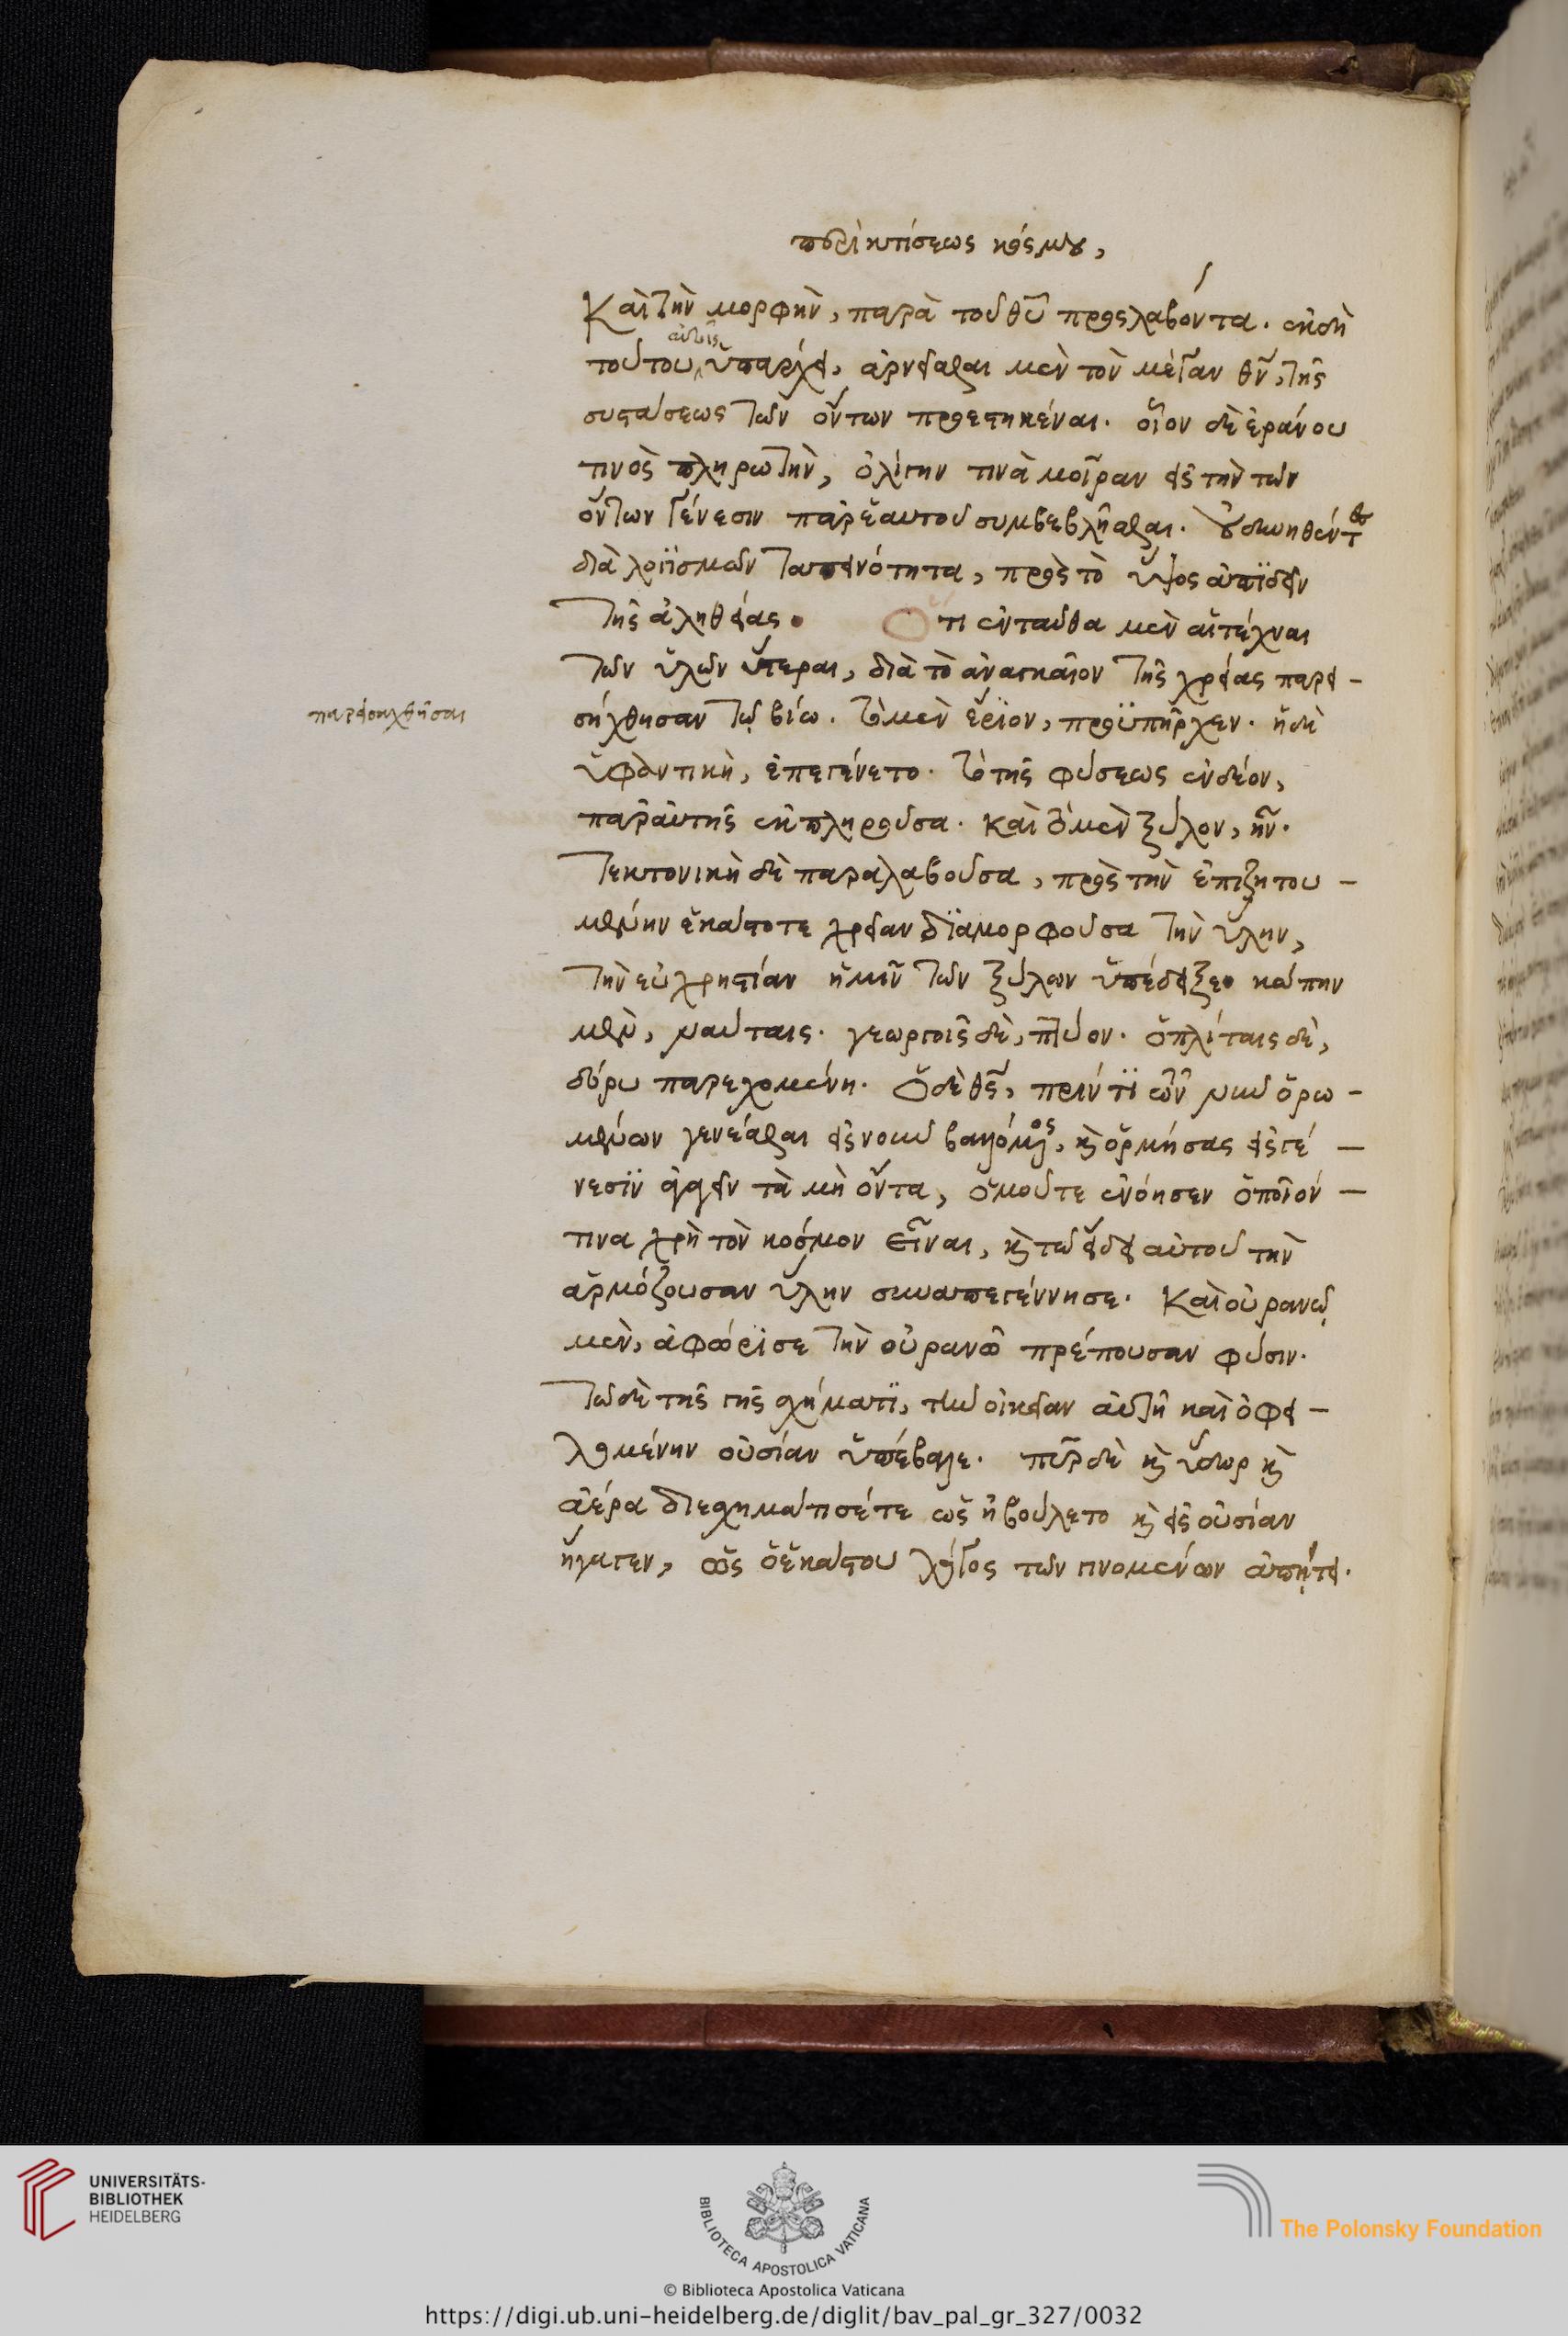 περὶ κτίσεως κόσμου,
Καὶ τὴν μορφὴν, παρὰ τοῦ θῦ προσλαβόντα. ἐκ δὲ
τούτου αὐτοῖς ὑπάρχει, ἀρνεῖσθαι μὲν τὸν μέγαν θν̃, τῆς
συστάσεως τῶν ὄντων προεστηκέναι. οἷον δὲ ἐράνου
τινὸς πληρωτὴν, ὀλίγην τινὰ μοῖραν εἰς τὴν τῶν
ὄντων γένεσιν παρ' ἑαυτοῦ συμβεβλῆσθαι.
διὰ λογισμῶν ταπεινότητα, πρὸς τὸ ὕψος ἀπιδεῖν
τῆς ἀληθείας. Ὅτι ἐνταῦθα μὲν αἱ τέχναι
τῶν ὑλῶν ὕστεραι, διὰ τὸ ἀναγκαῖον τῆς χρείας παρει-
παρεισαχθῆσαι
σήχθησαν τῷ βίῳ. τὸ μὲν ἔριον, προϋπῆρχεν. ἡ δὲ
ὑφαντικὴ, ἐπεγένετο. τὸ τῆς φύσεως ἐνδέον,
παρ' αὐτῆς ἐκπληροῦσα. καὶ τὸ μὲν ξύλον, ἦν.
τεκτονικὴ δὲ παραλαβοῦσα, πρὸς τὴν ἐπιζητου-
μένην ἑκάστοτε χρείαν διαμορφοῦσα τὴν ὕλην,
τὴν εὐχρηστίαν ἡμῖν τῶν ξύλων ὑπέδειξε κώπην
μὲν, ναύταις. γεωργοῖς δὲ, πτύον. ὁπλίταις δὲ,
δόρυ παρεχομένη. Ὁ δὲ θς̃, πρίν τι ὧν νῦν ὁρω-
μένων γενέσθαι εἰς νοῦν βαλόμενος, κὶ ὁρμήσας εἰς γέ-
νεσιν ἀγαγεῖν τὰ μὴ ὄντα, ὁμοῦ τε ἐνόησεν ὁποῖόν-
τινα χρὴ τὸν κόσμον εἶναι, κὶ τῷ εἴδει αὐτοῦ τὴν
ἁρμόζουσαν ὕλην συναπεγέννησε. Καὶ οὐρανῷ
μὲν, ἀφώρισε τὴν οὐρανῷ πρέπουσαν φύσιν.
τῷ δὲ τῆς γῆς σχήματι, τὴν οἰκείαν αὐτῇ καὶ ὀφει-
λομένην οὐσίαν ὑπέβαλε. πῦρ δὲ κὶ ὕδωρ κὶ
ἀέρα διεσχημάτισέ τε ὡς ἠβούλετο κὶ εἰς οὐσίαν
ἤγαγεν, ὡς ὁ ἑκάστου λόγος τῶν γινομένων ἀπῄτει.
UNIVERSITÄTS-
BIBLIOTHEK
HEIDELBERG
BIBLIOTECA APOSTOLICA VATICANA
© Biblioteca Apostolica Vaticana
The Polonsky Foundation
https://digi.ub.uni-heidelberg.de/diglit/bav_pal_gr_327/0032